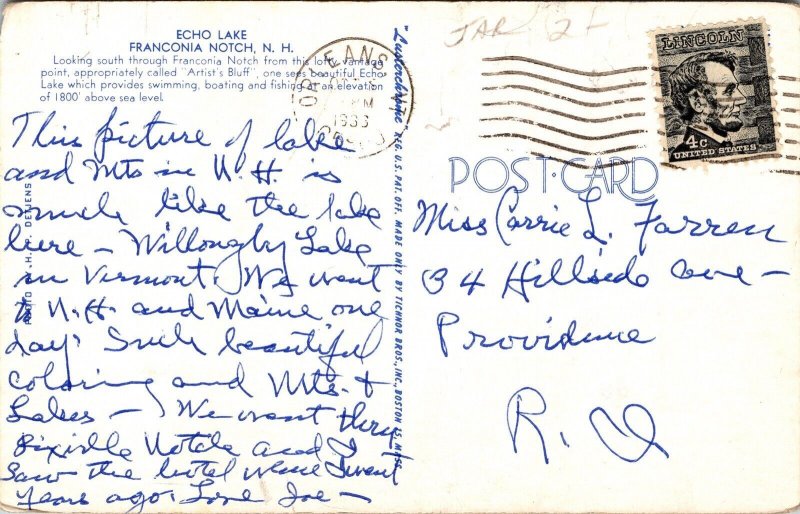 ECHO LAKE
FRANCONIA NOTCH, N. H.
Looking south through Franconia Notch from this lofty vantage
point, appropriately called "Artist's Bluff", one sees beautiful Echo
Lake which provides swimming, boating and fishing at an elevation
of 1800' above sea level.
This picture of lake
and Mts in N. H. is
much like the lake
here – Willougby Lake
in Vermont. We went
to N. H. and Maine one
day. Such beautiful
coloring and Mts. &
Lakes – We went thru
Dixville Notch and I
saw the hotel where I went
years ago. Love Joe –
"Luxochrome" REG. U.S. PAT. OFF. MADE ONLY BY TICHNOR BROS., INC., BOSTON 15, MASS.
JAR 2
ORLEANS
PM
LINCOLN
4c
UNITED STATES
POST CARD
Miss Carrie L. Farren
34 Hillside Ave –
Providence
R. I